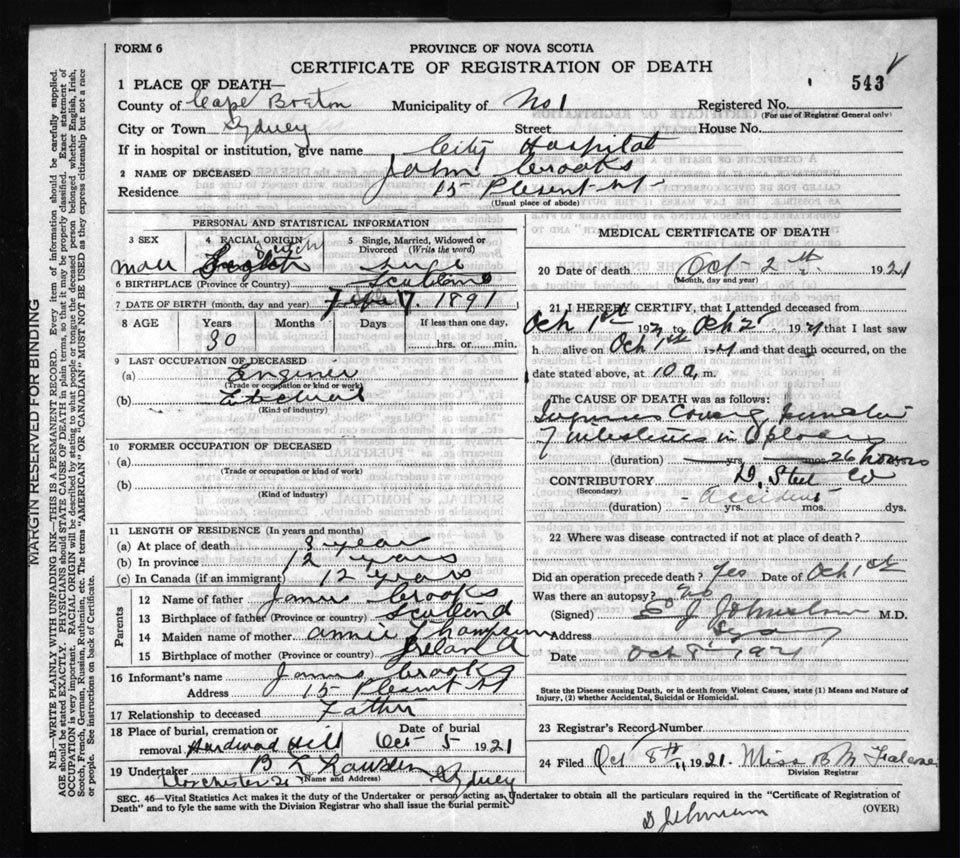 FORM 6
PROVINCE OF NOVA SCOTIA
CERTIFICATE OF REGISTRATION OF DEATH
543
1 PLACE OF DEATH—
County of Cape Breton Municipality of No 1 Registered No.
(For use of Registrar General only)
City or Town Sydney Street House No.
If in hospital or institution, give name City Hospital
2 NAME OF DECEASED John Crooks
Residence 15 Plesent St
(Usual place of abode)
PERSONAL AND STATISTICAL INFORMATION
3 SEX 4 RACIAL ORIGIN 5 Single, Married, Widowed or Divorced (Write the word)
Male English Scotch
6 BIRTHPLACE (Province or Country)
7 DATE OF BIRTH (month, day and year) 7 1891
8 AGE Years Months Days If less than one day,
30 hrs. or min.
9 LAST OCCUPATION OF DECEASED
(a) Enginer
(Trade or occupation or kind of work)
(b)
(Kind of industry)
10 FORMER OCCUPATION OF DECEASED
(a)
(Trade or occupation or kind of work)
(b)
(Kind of industry)
11 LENGTH OF RESIDENCE (In years and months)
(a) At place of death year
(b) In province 12 years
(c) In Canada (if an immigrant) 12 years
Parents
12 Name of father James Crooks
13 Birthplace of father (Province or country) Scotlind
14 Maiden name of mother Annie
15 Birthplace of mother (Province or country) Ireland
16 Informant's name James Crooks
Address 15 Plesent St
17 Relationship to deceased Father
18 Place of burial, cremation or removal Hardwood Hill Date of burial Oct 5 1921
19 Undertaker
(Name and Address)
Dorchester St Sydney
MEDICAL CERTIFICATE OF DEATH
20 Date of death Oct 2nd 1921
(Month, day and year)
21 I HEREBY CERTIFY, that I attended deceased from
Oct 1st 1921 to Oct 2 1921 that I last saw
h alive on Oct 1st and that death occurred, on the
date stated above, at 10 a. m.
The CAUSE OF DEATH was as follows:
(duration) yrs. mos. 26 hours
CONTRIBUTORY D. Steel Co
(Secondary) Accident
(duration) yrs. mos. dys.
22 Where was disease contracted if not at place of death?
Did an operation precede death? Yes Date of Oct 1st
Was there an autopsy? No
(Signed) J Johnstone M.D.
Address Sydney
Date Oct 8 1921
State the Disease causing Death, or in death from Violent Causes, state (1) Means and Nature of Injury, (2) whether Accidental, Suicidal or Homicidal.
23 Registrar's Record Number
24 Filed Oct 8th 1921. Miss B M
Division Registrar
SEC. 46—Vital Statistics Act makes it the duty of the Undertaker or person acting as Undertaker to obtain all the particulars required in the "Certificate of Registration of
Death" and to fyle the same with the Division Registrar who shall issue the burial permit. (OVER)
MARGIN RESERVED FOR BINDING
N.B.—WRITE PLAINLY WITH UNFADING INK—THIS IS A PERMANENT RECORD. Every item of information should be carefully supplied.
AGE should be stated EXACTLY. PHYSICIANS should STATE CAUSE OF DEATH in plain terms, so that it may be properly classified. Exact statement of
OCCUPATION is very important. RACIAL ORIGIN will be described by stating to what people or tongue the deceased person belonged whether English, Irish,
Scotch, French, German, Russian, Ruthenian, etc. The terms "AMERICAN" OR "CANADIAN" MUST NOT BE USED as they express citizenship but not a race
or people. See instructions on back of Certificate.